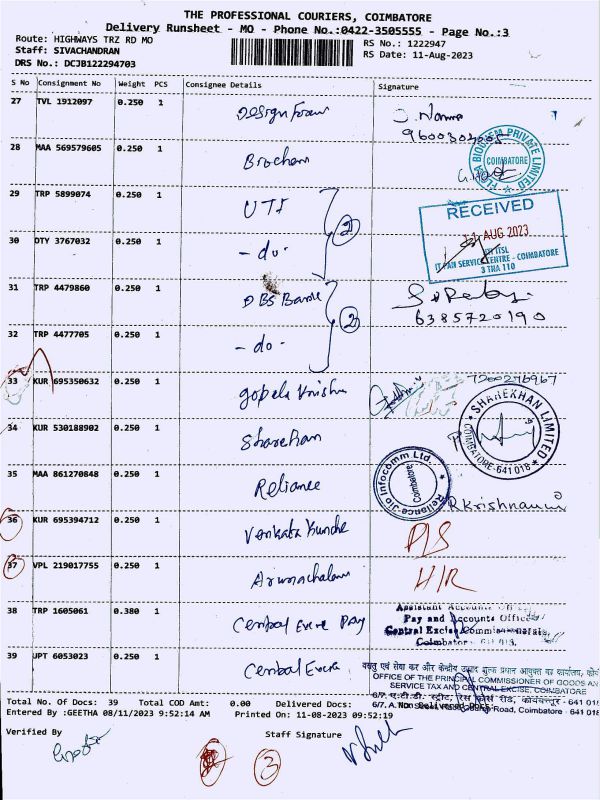 THE PROFESSIONAL COURIERS, COIMBATORE
Delivery Runsheet - MO - Phone No.:0422-3505555 - Page No.:3
Route: HIGHWAYS TRZ RD MO
Staff: SIVACHANDRAN
DRS No.: DCJB122294703
RS No.: 1222947
RS Date: 11-Aug-2023
S No Consignment No Weight PCS Consignee Details Signature
27 TVL 1912097 0.250 1
28 MAA 569579605 0.250 1 Biochem
FLEM BIOCHEM PRIVATE LIMITED
COIMBATORE
29 TRP 5899074 0.250 1 UTI
2
RECEIVED
11 AUG 2023
IT PAN SERVICE CENTRE - COIMBATORE
3 TNA 110
30 DTY 3767032 0.250 1 - do -
31 TRP 4479860 0.250 1 DBS Bank
2
6385720190
32 TRP 4477705 0.250 1 - do -
33 KUR 695350632 0.250 1 gopala
7200276967
34 KUR 530188902 0.250 1 Sharekhan
SHAREKHAN LIMITED
COIMBATORE-641 018
35 MAA 861270848 0.250 1 Reliance
Reliance Jio Infocomm Ltd.
Coimbatore
R Krishnaveni
36 KUR 695394712 0.250 1 Venkata
D/S
37 VPL 219017755 0.250 1 Arunachalam
H/R
38 TRP 1605061 0.380 1 Central Excise Pay
Pay and Accounts Office
Central Excise Commissionerate
Coimbatore
39 JPT 6053023 0.250 1 Central Excise
OFFICE OF THE PRINCIPAL COMMISSIONER OF GOODS AN
SERVICE TAX AND CENTRAL EXCISE, COIMBATORE
Road, Coimbatore - 641 018
Total No. Of Docs: 39 Total COD Amt: 0.00 Delivered Docs: Non Delivered Docs:
Entered By :GEETHA 08/11/2023 9:52:14 AM Printed On: 11-08-2023 09:52:19
Verified By Staff Signature
3